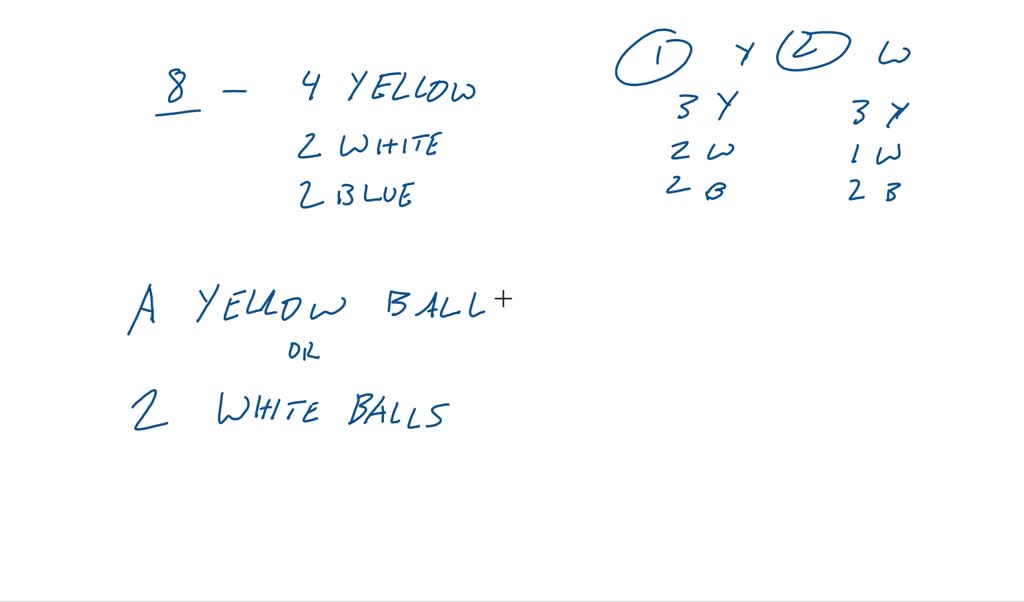 8 - 4 YELLOW
2 WHITE
2 BLUE
1 Y 2 W
3 Y 3 Y
2 W 1 W
2 B 2 B
A YELLOW BALL
OR
2 WHITE BALLS